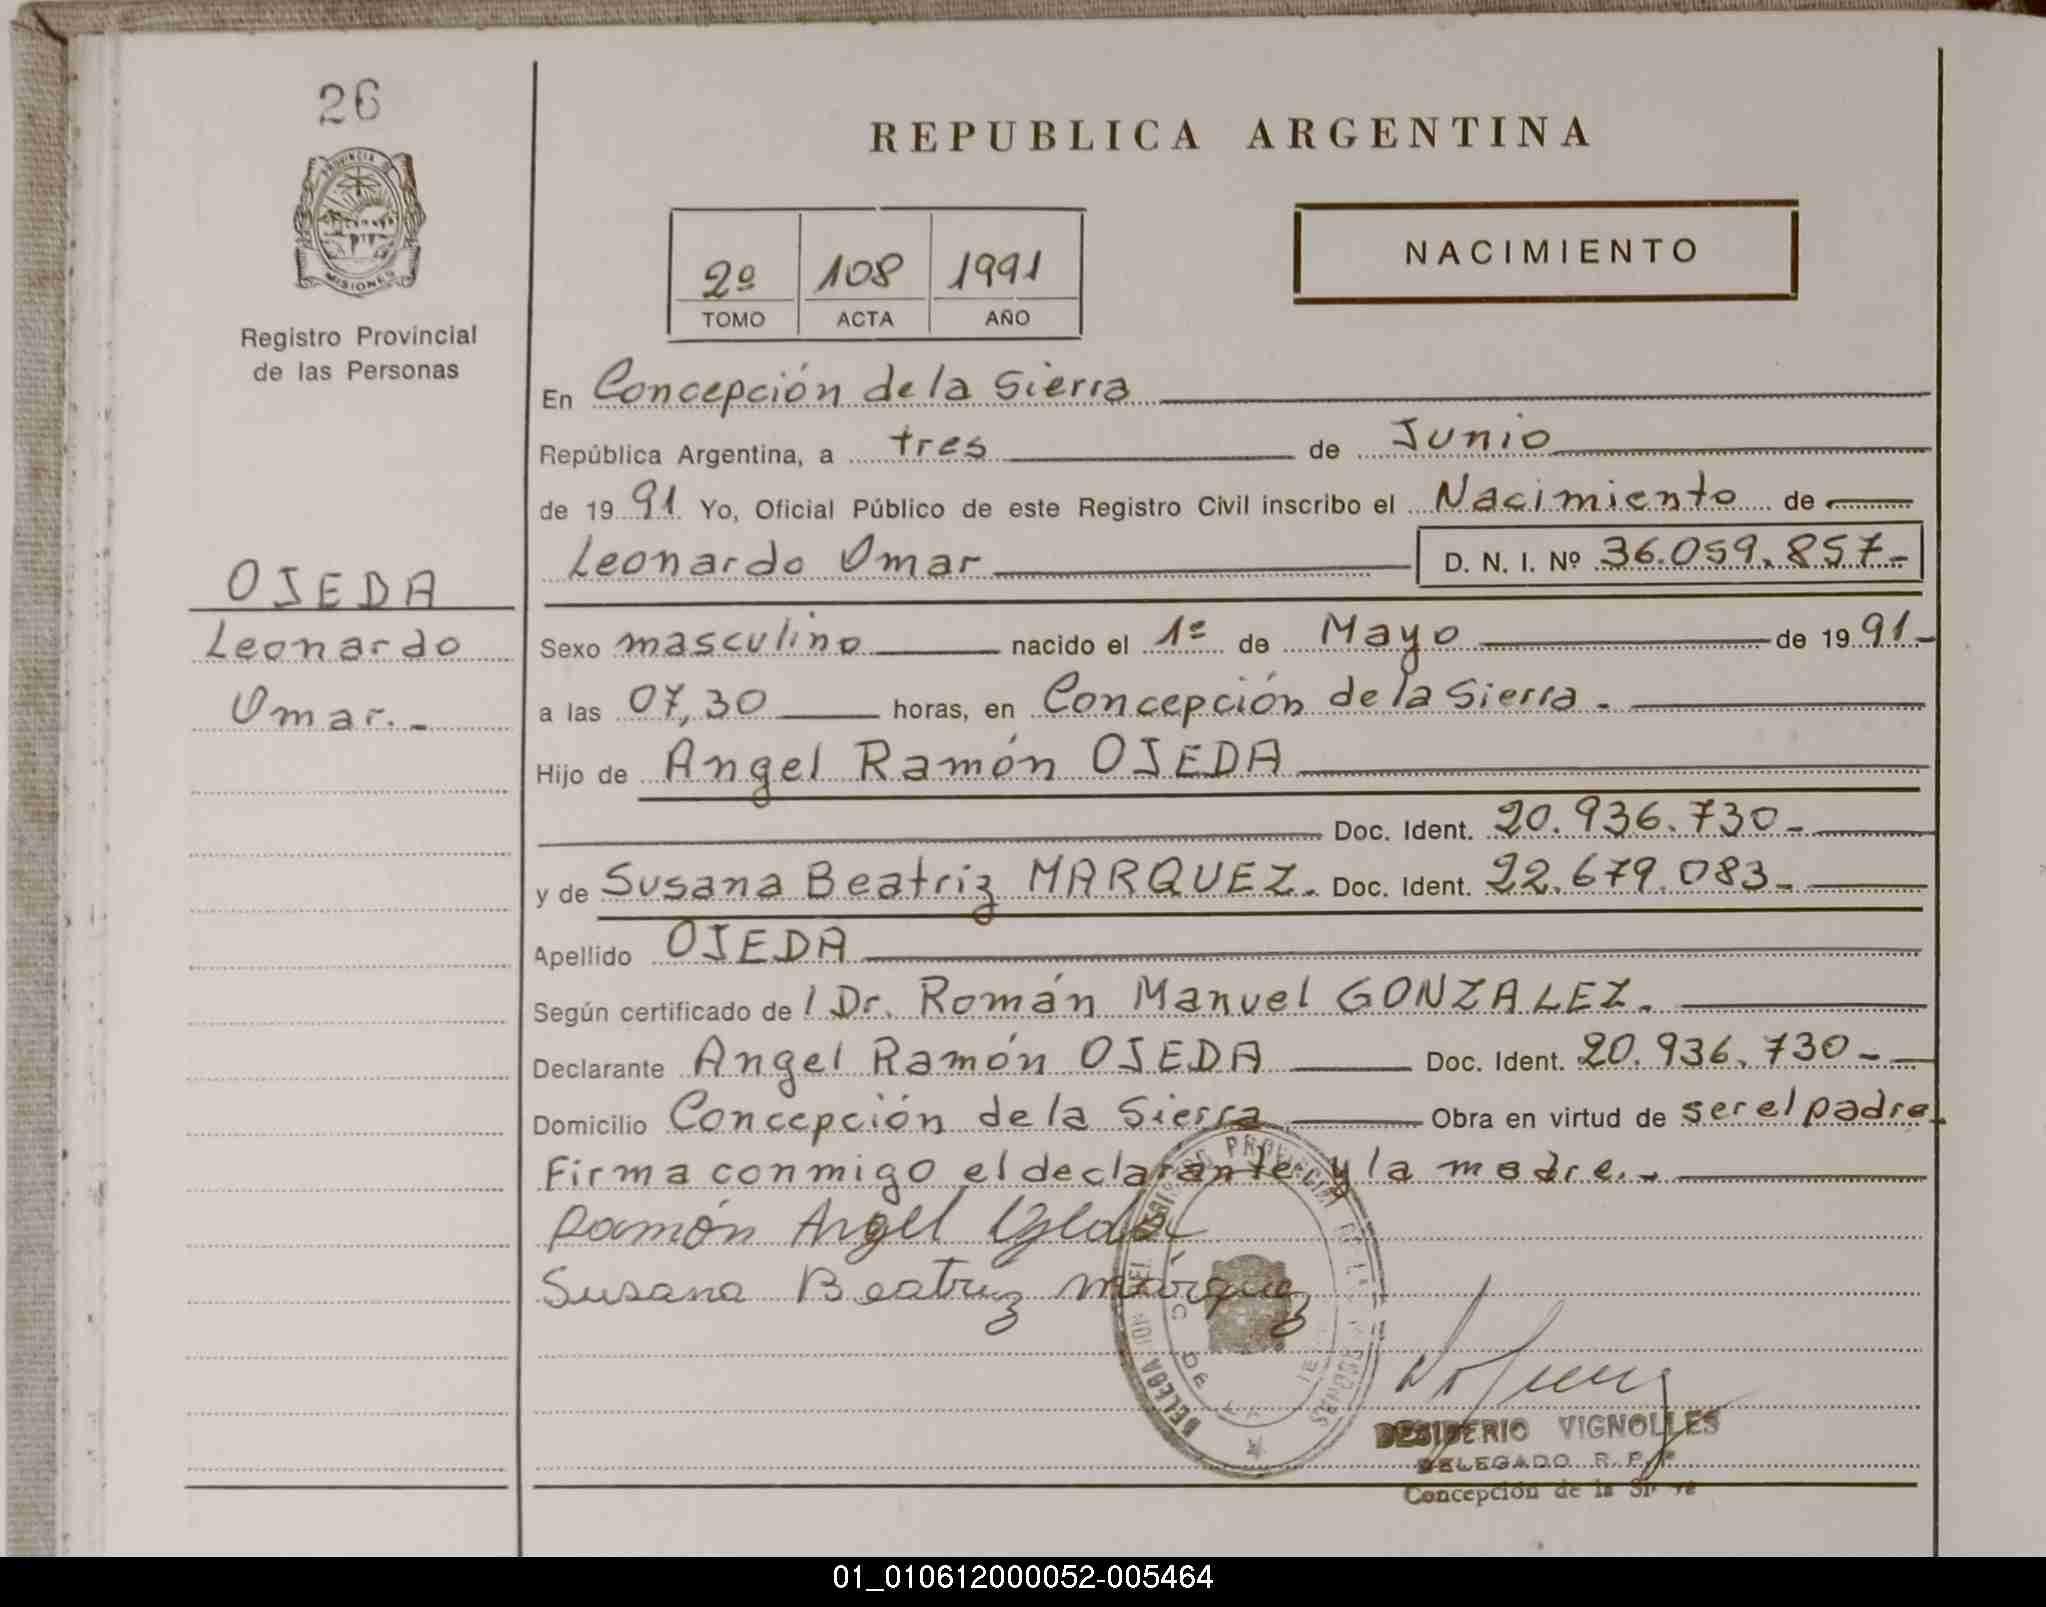 26
PROVINCIA DE
MISIONES
Registro Provincial
de las Personas
OJEDA
Leonardo
Omar.-
REPUBLICA ARGENTINA
2º 108 1991
TOMO ACTA AÑO
NACIMIENTO
En Concepción de la Sierra
República Argentina, a tres de Junio
de 19 91 Yo, Oficial Público de este Registro Civil inscribo el Nacimiento de
Leonardo Omar D. N. I. Nº 36.059.857-
Sexo masculino nacido el 1º de Mayo de 19 91-
a las 07,30 horas, en Concepción de la Sierra.
Hijo de Angel Ramón OJEDA
Doc. Ident. 20.936.730-
y de Susana Beatriz MARQUEZ. Doc. Ident. 22.679.083-
Apellido OJEDA
Según certificado de l Dr. Román Manuel GONZALEZ.
Declarante Angel Ramón OJEDA Doc. Ident. 20.936.730-
Domicilio Concepción de la Sierra Obra en virtud de ser el padre.
Firma conmigo el declarante y la madre.-
Ramón Angel Ojeda
Susana Beatriz Márquez
DESIDERIO VIGNOLLES
DELEGADO R. P. P.
Concepción de la
01_010612000052-005464